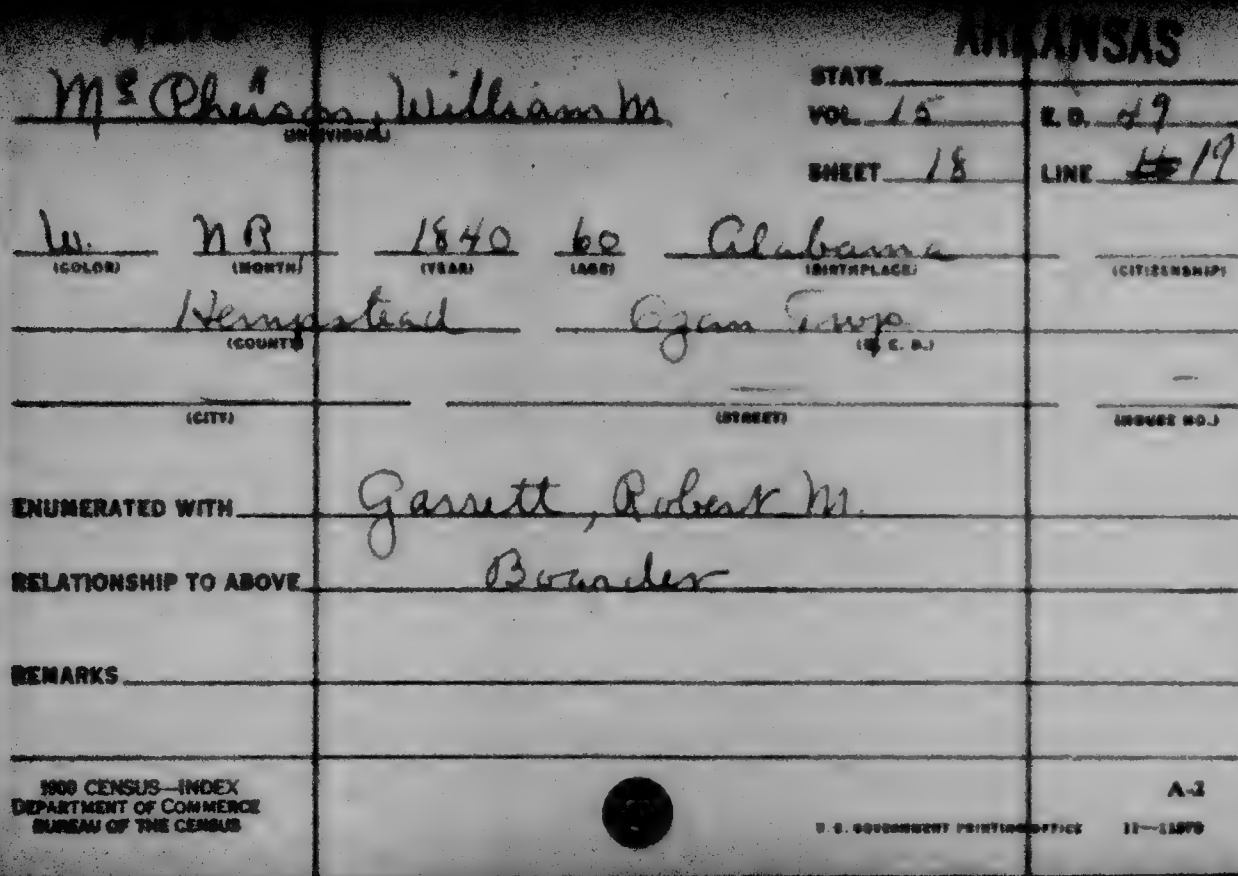 ARKANSAS
STATE
McPherson, William M
(INDIVIDUAL)
VOL. 15 E. D.
SHEET 18 LINE 19
W. NR 1840 60 Alabama
(COLOR) (MONTH) (YEAR) (AGE) (BIRTHPLACE) (CITIZENSHIP)
Hempstead Ozan Twp.
(COUNTY) (M. C. D.)
(CITY) (STREET) (HOUSE NO.)
ENUMERATED WITH Garrett, Robert M.
RELATIONSHIP TO ABOVE Boarder
REMARKS
1900 CENSUS—INDEX
DEPARTMENT OF COMMERCE
BUREAU OF THE CENSUS
A-2
U.S. GOVERNMENT PRINTING OFFICE